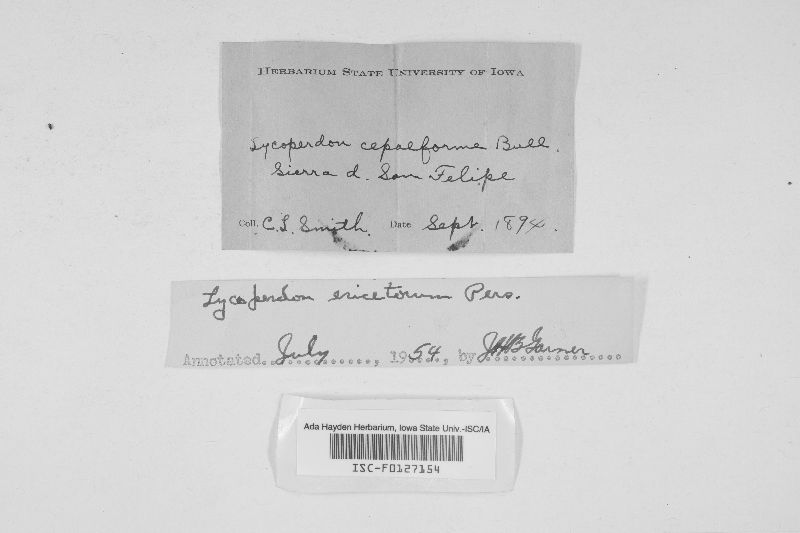 HERBARIUM STATE UNIVERSITY OF IOWA
Lycoperdon cepaeforme Bull.
Sierra d. San Felipe
Coll. C. L. Smith. Date Sept. 1894.
Lycoperdon ericetorum Pers.
Annotated. July, 1954, by J.H.B. Garner
Ada Hayden Herbarium, Iowa State Univ.-ISC/IA
ISC-F0127154